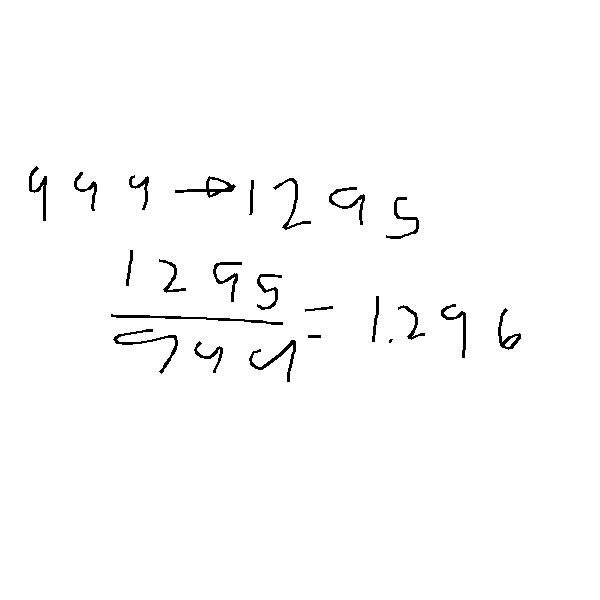 999 → 1295
1295
999 = 1.296